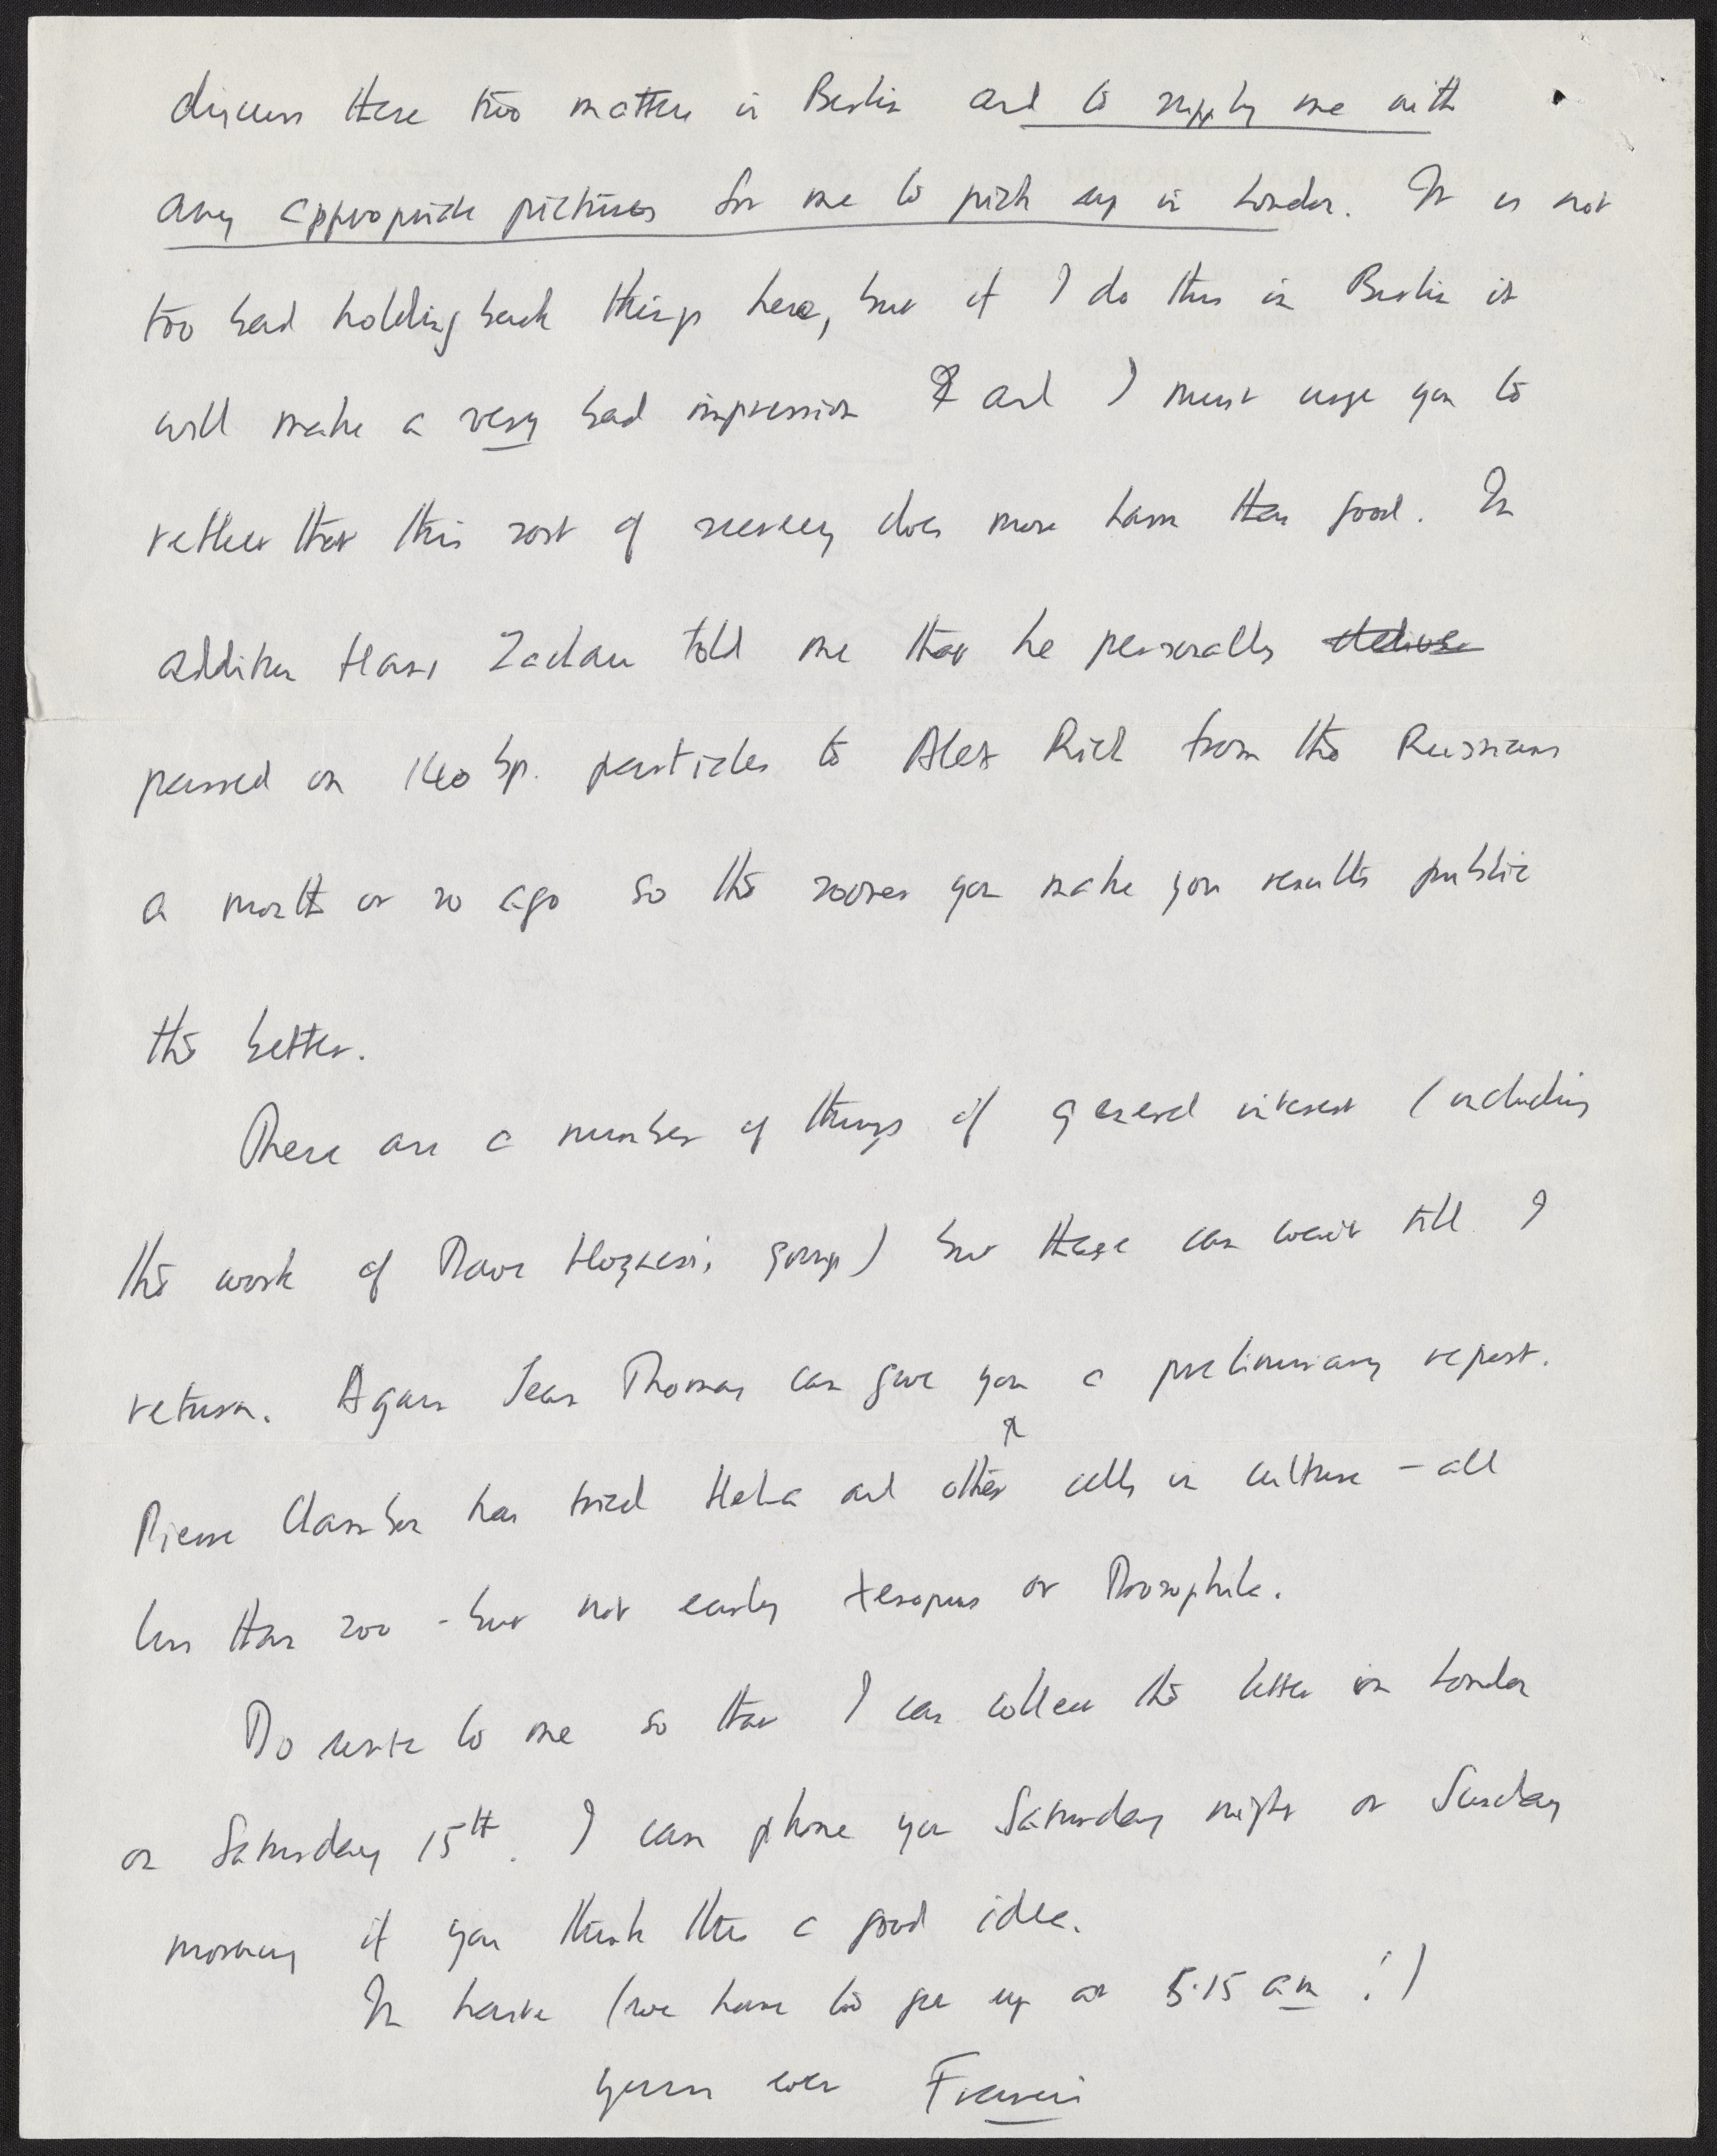 discuss these two matters in Berlin and to supply me with
any appropriate pictures for me to pick up in London. It is not
too bad holding back things here, but if I do this in Berlin it
will make a very bad impression and I must urge you to
reflect that this sort of secrecy does more harm than good. In
addition Hans Zachau told me that he personally
passed on 140 bp. particles to Alex Rich from the Russians
a month or so ago so the sooner you make you results public
the better.
There are a number of things of general interest (including
the work of Dave Hogness's group) but these can wait till I
return. Again Jean Thomas can give you a preliminary report.
Pierre Chambon has tried HeLa and other cells in culture – all
less than 200 - but not early Xenopus or Drosophila.
Do write to me so that I can collect the letter in London
on Saturday 15th. I can phone you Saturday night or Sunday
morning if you think this a good idea.
In haste (we have to get up at 5.15 am!)
yours ever Francis